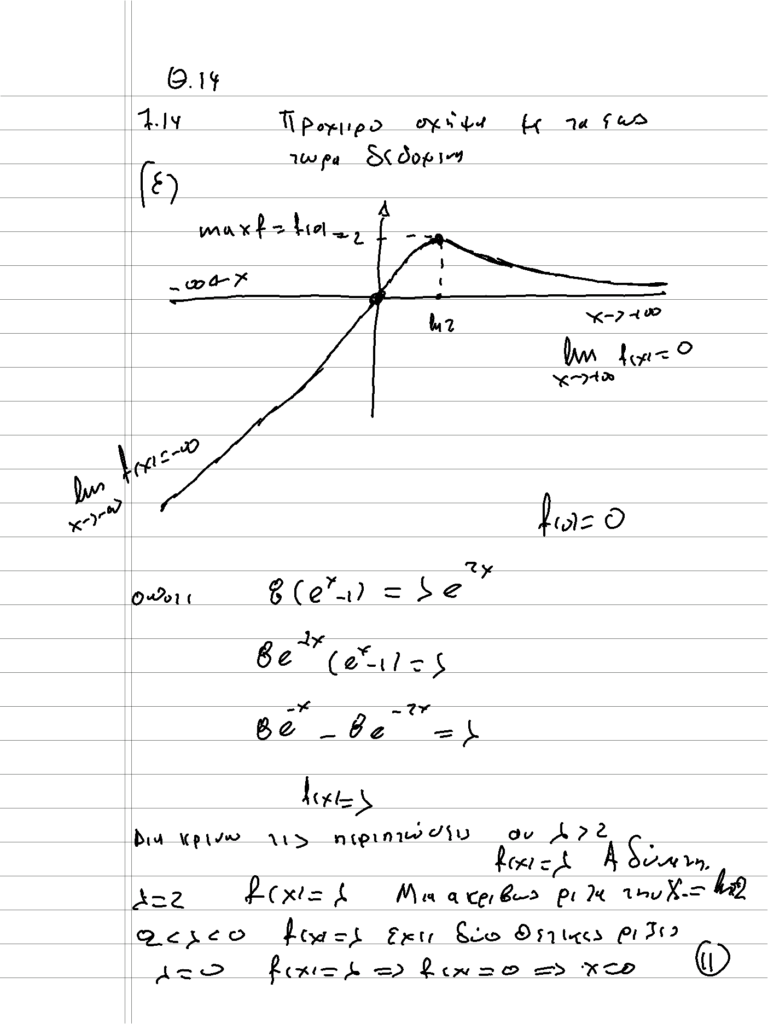 Θ.14
7.14 Προχειρο σχήμα με τα εως
τωρα δεδομενα
(ε)
max f = f(0) = 2
-∞ ← x
ln2
x → +∞
lim f(x) = 0
x→+∞
lim f(x) = -∞
x→-∞
f(0) = 0
οποτε 8(e^x - 1) = λe^{2x}
8e^{-2x}(e^x - 1) = λ
8e^{-x} - 8e^{-2x} = λ
f(x) = λ
Διακρινω τις περιπτώσεις αν λ > 2
f(x) = λ Αδύνατη.
λ = 2 f(x) = λ Μια ακριβως ριζα την x₀ = ln2
2 < λ < 0 f(x) = λ εχει δύο θετικες ριζες
λ = 0 f(x) = λ => f(x) = 0 => x = 0 (11)